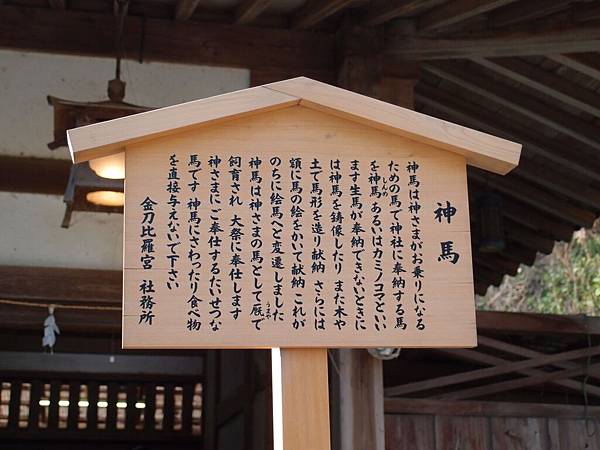 神馬
神馬は神さまがお乗りになる
ための馬で神社に奉納する馬
を神馬 あるいはカミノコマとい
しんめ
ます生馬が奉納できないときに
は神馬を鋳像したり また木や
土で馬形を造り献納 さらには
額に馬の絵をかいて献納 これが
のちに絵馬へと変遷しました
神馬は神さまの馬として厩で
うまや
飼育され 大祭に奉仕します
神さまにご奉仕するたいせつな
馬です 神馬にさわったり食べ物
を直接与えないで下さい
金刀比羅宮 社務所